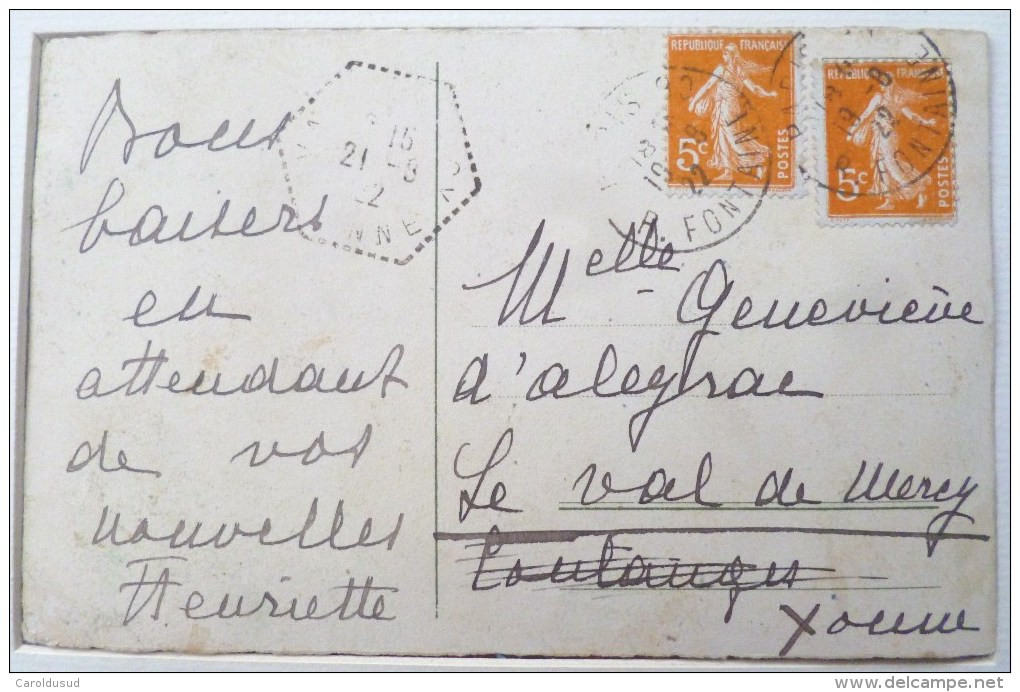 Bons
baisers
en
attendant
de vos
nouvelles
Henriette
15
21 -8
RÉPUBLIQUE FRANÇAISE
5c
POSTES
RÉPUBLIQUE FRANÇAISE
5c
POSTES
R. FONTAINE
19 -8
22
FONTAINE
Melle Geneviève
d'alegrac
Le val de Mercy
Coulanges
Yonne
Caroldusud
www.delcampe.net